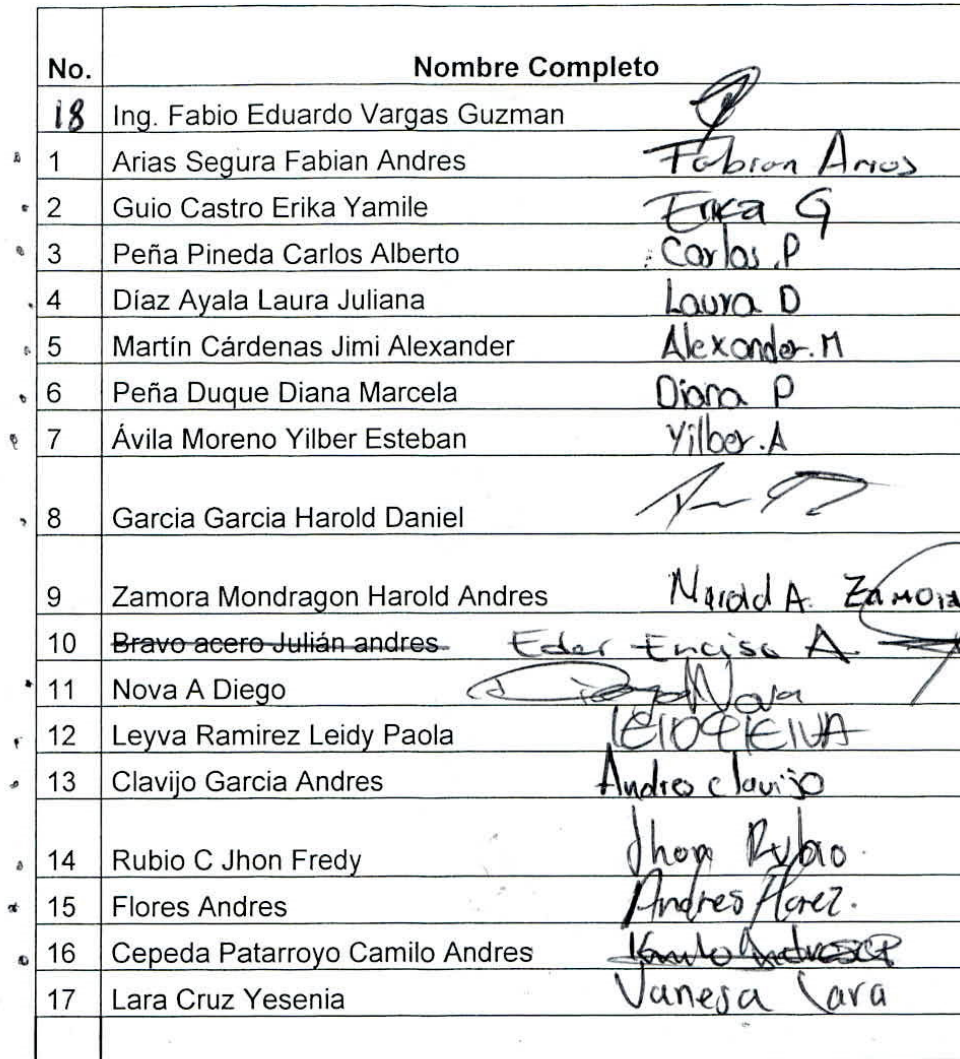 No. Nombre Completo
18 Ing. Fabio Eduardo Vargas Guzman
1 Arias Segura Fabian Andres Fabian Arias
2 Guio Castro Erika Yamile Erika G
3 Peña Pineda Carlos Alberto Carlos.P
4 Díaz Ayala Laura Juliana Laura D
5 Martín Cárdenas Jimi Alexander Alexander.M
6 Peña Duque Diana Marcela Diana P
7 Ávila Moreno Yilber Esteban Yilber.A
8 Garcia Garcia Harold Daniel
9 Zamora Mondragon Harold Andres Harold A. Zamora
10 Bravo acero Julián andres Eder Enciso A
11 Nova A Diego Diego Nova
12 Leyva Ramirez Leidy Paola
13 Clavijo Garcia Andres Andres Clavijo
14 Rubio C Jhon Fredy Jhon Rubio
15 Flores Andres Andres Florez.
16 Cepeda Patarroyo Camilo Andres
17 Lara Cruz Yesenia Vanesa Lara